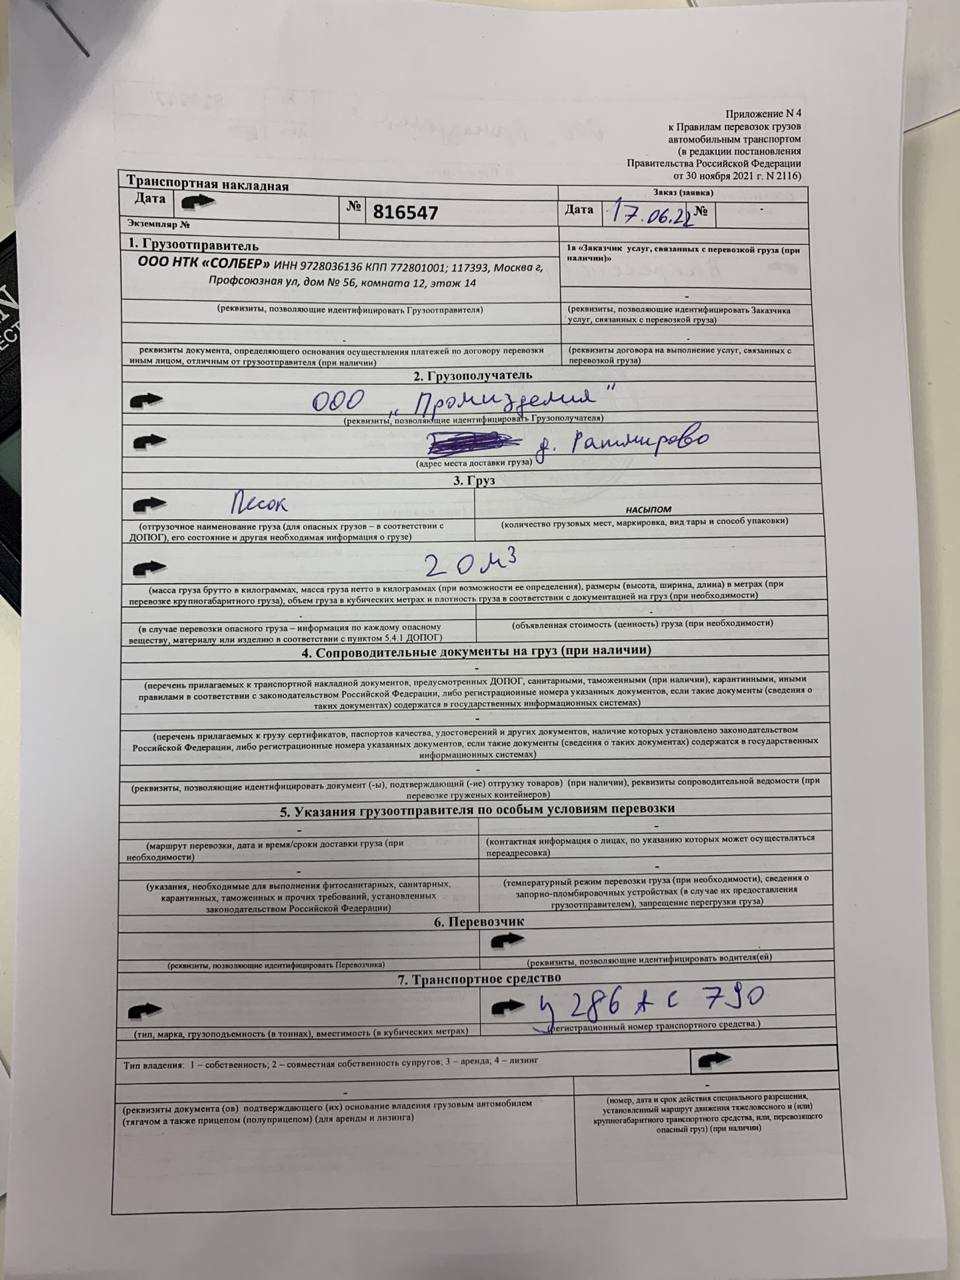 Приложение N 4
к Правилам перевозок грузов
автомобильным транспортом
(в редакции постановления
Правительства Российской Федерации
от 30 ноября 2021 г. N 2116)
Транспортная накладная
Заказ (заявка)
Дата № 816547 Дата 17.06.22 № -
Экземпляр №
1. Грузоотправитель
1а «Заказчик услуг, связанных с перевозкой груза (при
наличии)»
ООО НТК «СОЛБЕР» ИНН 9728036136 КПП 772801001; 117393, Москва г,
Профсоюзная ул, дом № 56, комната 12, этаж 14
-
(реквизиты, позволяющие идентифицировать Грузоотправителя)
(реквизиты, позволяющие идентифицировать Заказчика
услуг, связанных с перевозкой груза)
-
-
реквизиты документа, определяющего основания осуществления платежей по договору перевозки
иным лицом, отличным от грузоотправителя (при наличии)
(реквизиты договора на выполнение услуг, связанных с
перевозкой груза)
2. Грузополучатель
ООО „Промизделия"
(реквизиты, позволяющие идентифицировать Грузополучателя)
д. Ратмирово
(адрес места доставки груза)
3. Груз
Песок
НАСЫПОМ
(отгрузочное наименование груза (для опасных грузов – в соответствии с
ДОПОГ), его состояние и другая необходимая информация о грузе)
(количество грузовых мест, маркировка, вид тары и способ упаковки)
20 м3
(масса груза брутто в килограммах, масса груза нетто в килограммах (при возможности ее определения), размеры (высота, ширина, длина) в метрах (при
перевозке крупногабаритного груза), объем груза в кубических метрах и плотность груза в соответствии с документацией на груз (при необходимости)
-
-
(в случае перевозки опасного груза – информация по каждому опасному
веществу, материалу или изделию в соответствии с пунктом 5.4.1 ДОПОГ)
(объявленная стоимость (ценность) груза (при необходимости)
4. Сопроводительные документы на груз (при наличии)
-
(перечень прилагаемых к транспортной накладной документов, предусмотренных ДОПОГ, санитарными, таможенными (при наличии), карантинными, иными
правилами в соответствии с законодательством Российской Федерации, либо регистрационные номера указанных документов, если такие документы (сведения о
таких документах) содержатся в государственных информационных системах)
-
(перечень прилагаемых к грузу сертификатов, паспортов качества, удостоверений и других документов, наличие которых установлено законодательством
Российской Федерации, либо регистрационные номера указанных документов, если такие документы (сведения о таких документах) содержатся в государственных
информационных системах)
-
(реквизиты, позволяющие идентифицировать документ (-ы), подтверждающий (-ие) отгрузку товаров) (при наличии), реквизиты сопроводительной ведомости (при
перевозке груженых контейнеров)
5. Указания грузоотправителя по особым условиям перевозки
-
-
(маршрут перевозки, дата и время/сроки доставки груза (при
необходимости)
(контактная информация о лицах, по указанию которых может осуществляться
переадресовка)
-
-
(указания, необходимые для выполнения фитосанитарных, санитарных,
карантинных, таможенных и прочих требований, установленных
законодательством Российской Федерации)
(температурный режим перевозки груза (при необходимости), сведения о
запорно-пломбировочных устройствах (в случае их предоставления
грузоотправителем), запрещение перегрузки груза)
6. Перевозчик
(реквизиты, позволяющие идентифицировать Перевозчика)
(реквизиты, позволяющие идентифицировать водителя(ей)
7. Транспортное средство
У 286 АС 790
(тип, марка, грузоподъемность (в тоннах), вместимость (в кубических метрах)
(регистрационный номер транспортного средства)
Тип владения: 1 – собственность; 2 – совместная собственность супругов; 3 – аренда; 4 – лизинг
-
-
(реквизиты документа (ов) подтверждающего (их) основание владения грузовым автомобилем
(тягачом а также прицепом (полуприцепом) (для аренды и лизинга)
(номер, дата и срок действия специального разрешения,
установленный маршрут движения тяжеловесного и (или)
крупногабаритного транспортного средства, или, перевозящего
опасный груз) (при наличии)